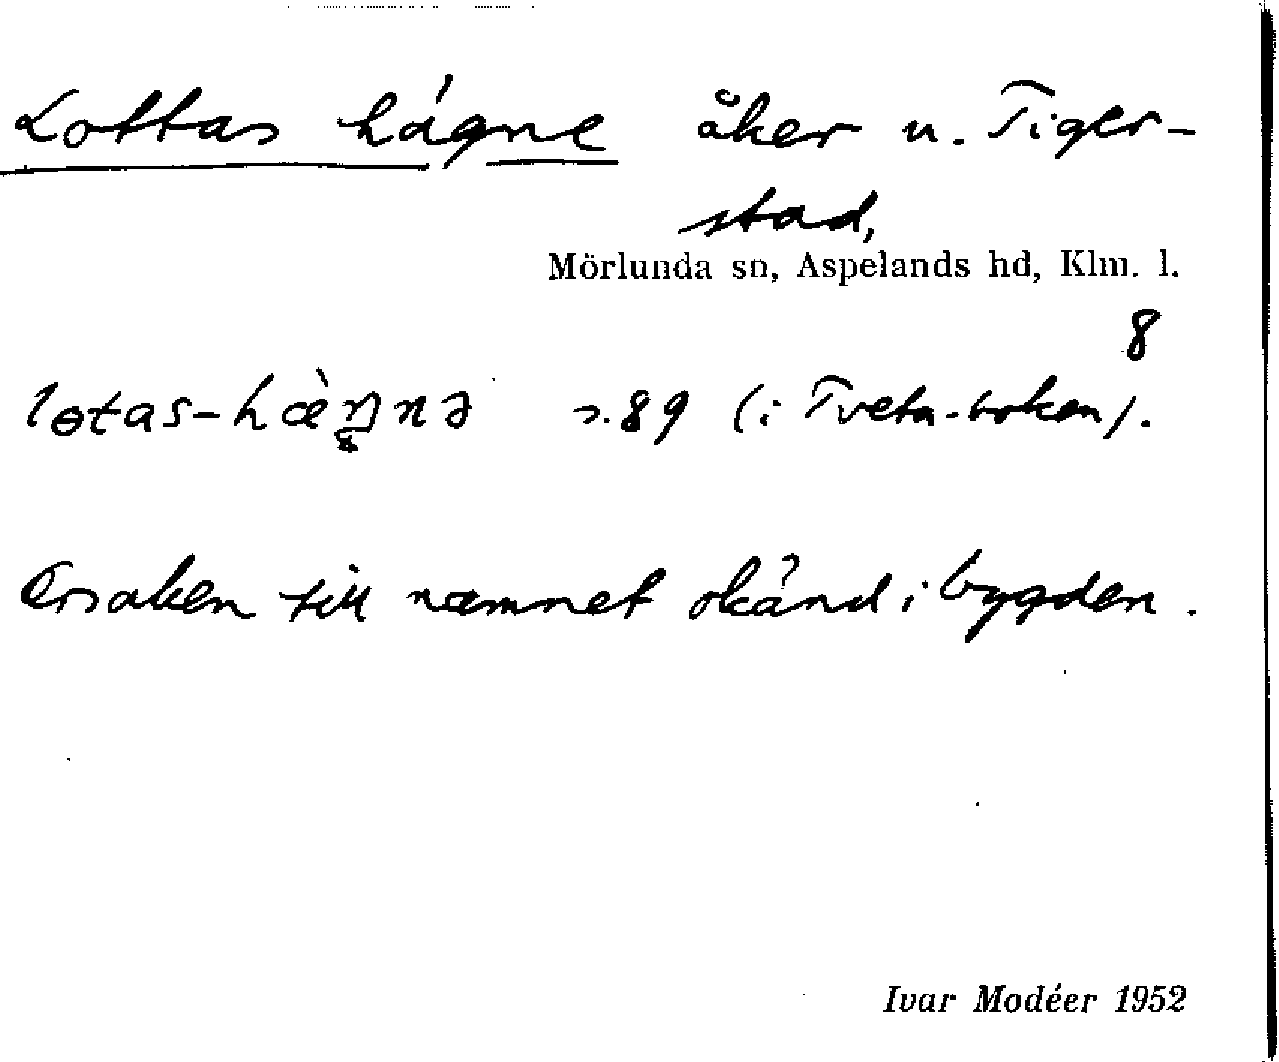 Lottas hägne åker u. Tiger-
stad,
Mörlunda sn, Aspelands hd, Klm. l.
8
lɵtas-hæ̀ŋnə s. 89 (i Tveta-boken).
Orsaken till namnet okänd i bygden.
Ivar Modéer 1952